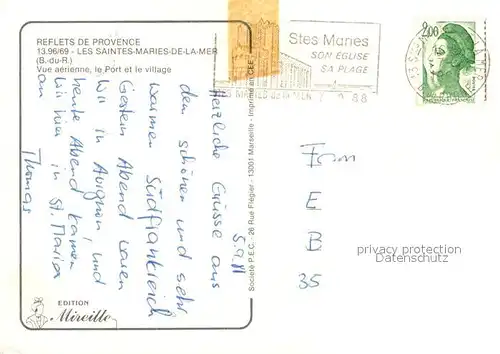 REFLETS DE PROVENCE
13.96/69 - LES SAINTES-MARIES-DE-LA-MER
(B.-du-R.)
Vue aérienne, le Port et le village
Stes Maries
SON EGLISE
SA PLAGE
2,00
Herzliche Grüsse aus
dem schönen und sehr
warmen Südfrankreich
Gestern Abend waren
wir in Avignon, und
heute Abend kamen
wir hier in St. Maria
an
Thomas
Société P.E.C. - 26 Rue Frégier - 13001 Marseille - Imprimé en CEE
E
B
35
privacy protection
Datenschutz
EDITION
Mireille